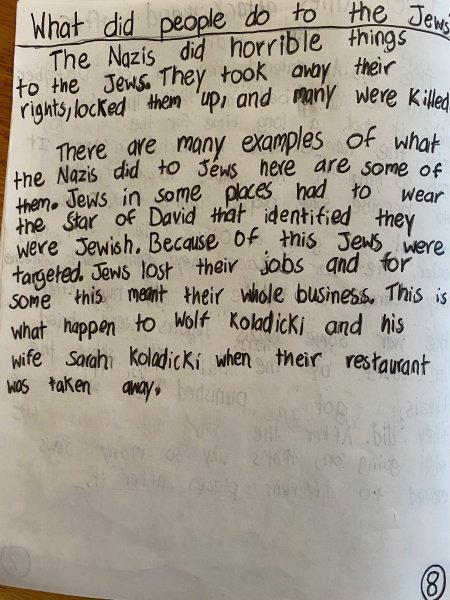 What did people do to the Jews
The Nazis did horrible things
to the Jews. They took away their
rights, locked them up, and many were killed
There are many examples of what
the Nazis did to Jews here are some of
them. Jews in some places had to wear
the Star of David that identified they
were Jewish. Because of this Jews were
targeted. Jews lost their jobs and for
some this meant their whole business. This is
what happen to Wolf Koladicki and his
wife Sarah Koladicki when their restaurant
was taken away.
8